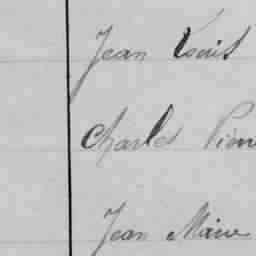 Jean Louis
Charles Pierr
Jean Marie